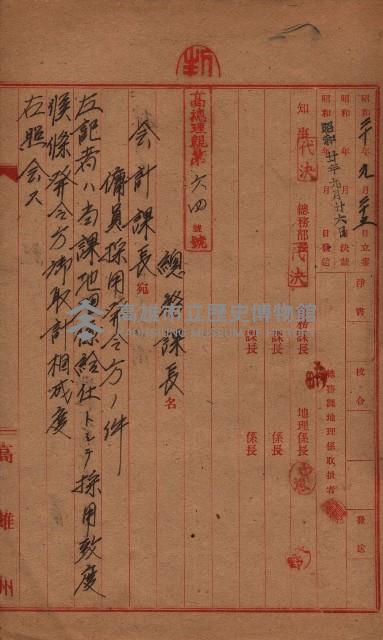 昭和二十年九月二十三日立案
昭和廿年九月廿六日決裁
昭和 年 月 日發送
淨書
校合
發送
知事 代決
總務部長 代決
總務課長
課長
課長
地理係長
係長
係長
總務課地理係取扱者
高總理親第六四號
號
總務課長名
会計課長宛
傭員採用發令方ノ件
左記者ハ当課地理係給仕トシテ採用致度
候條發令方御取計相成度
右照会ス
高雄州
高雄市立歷史博物館